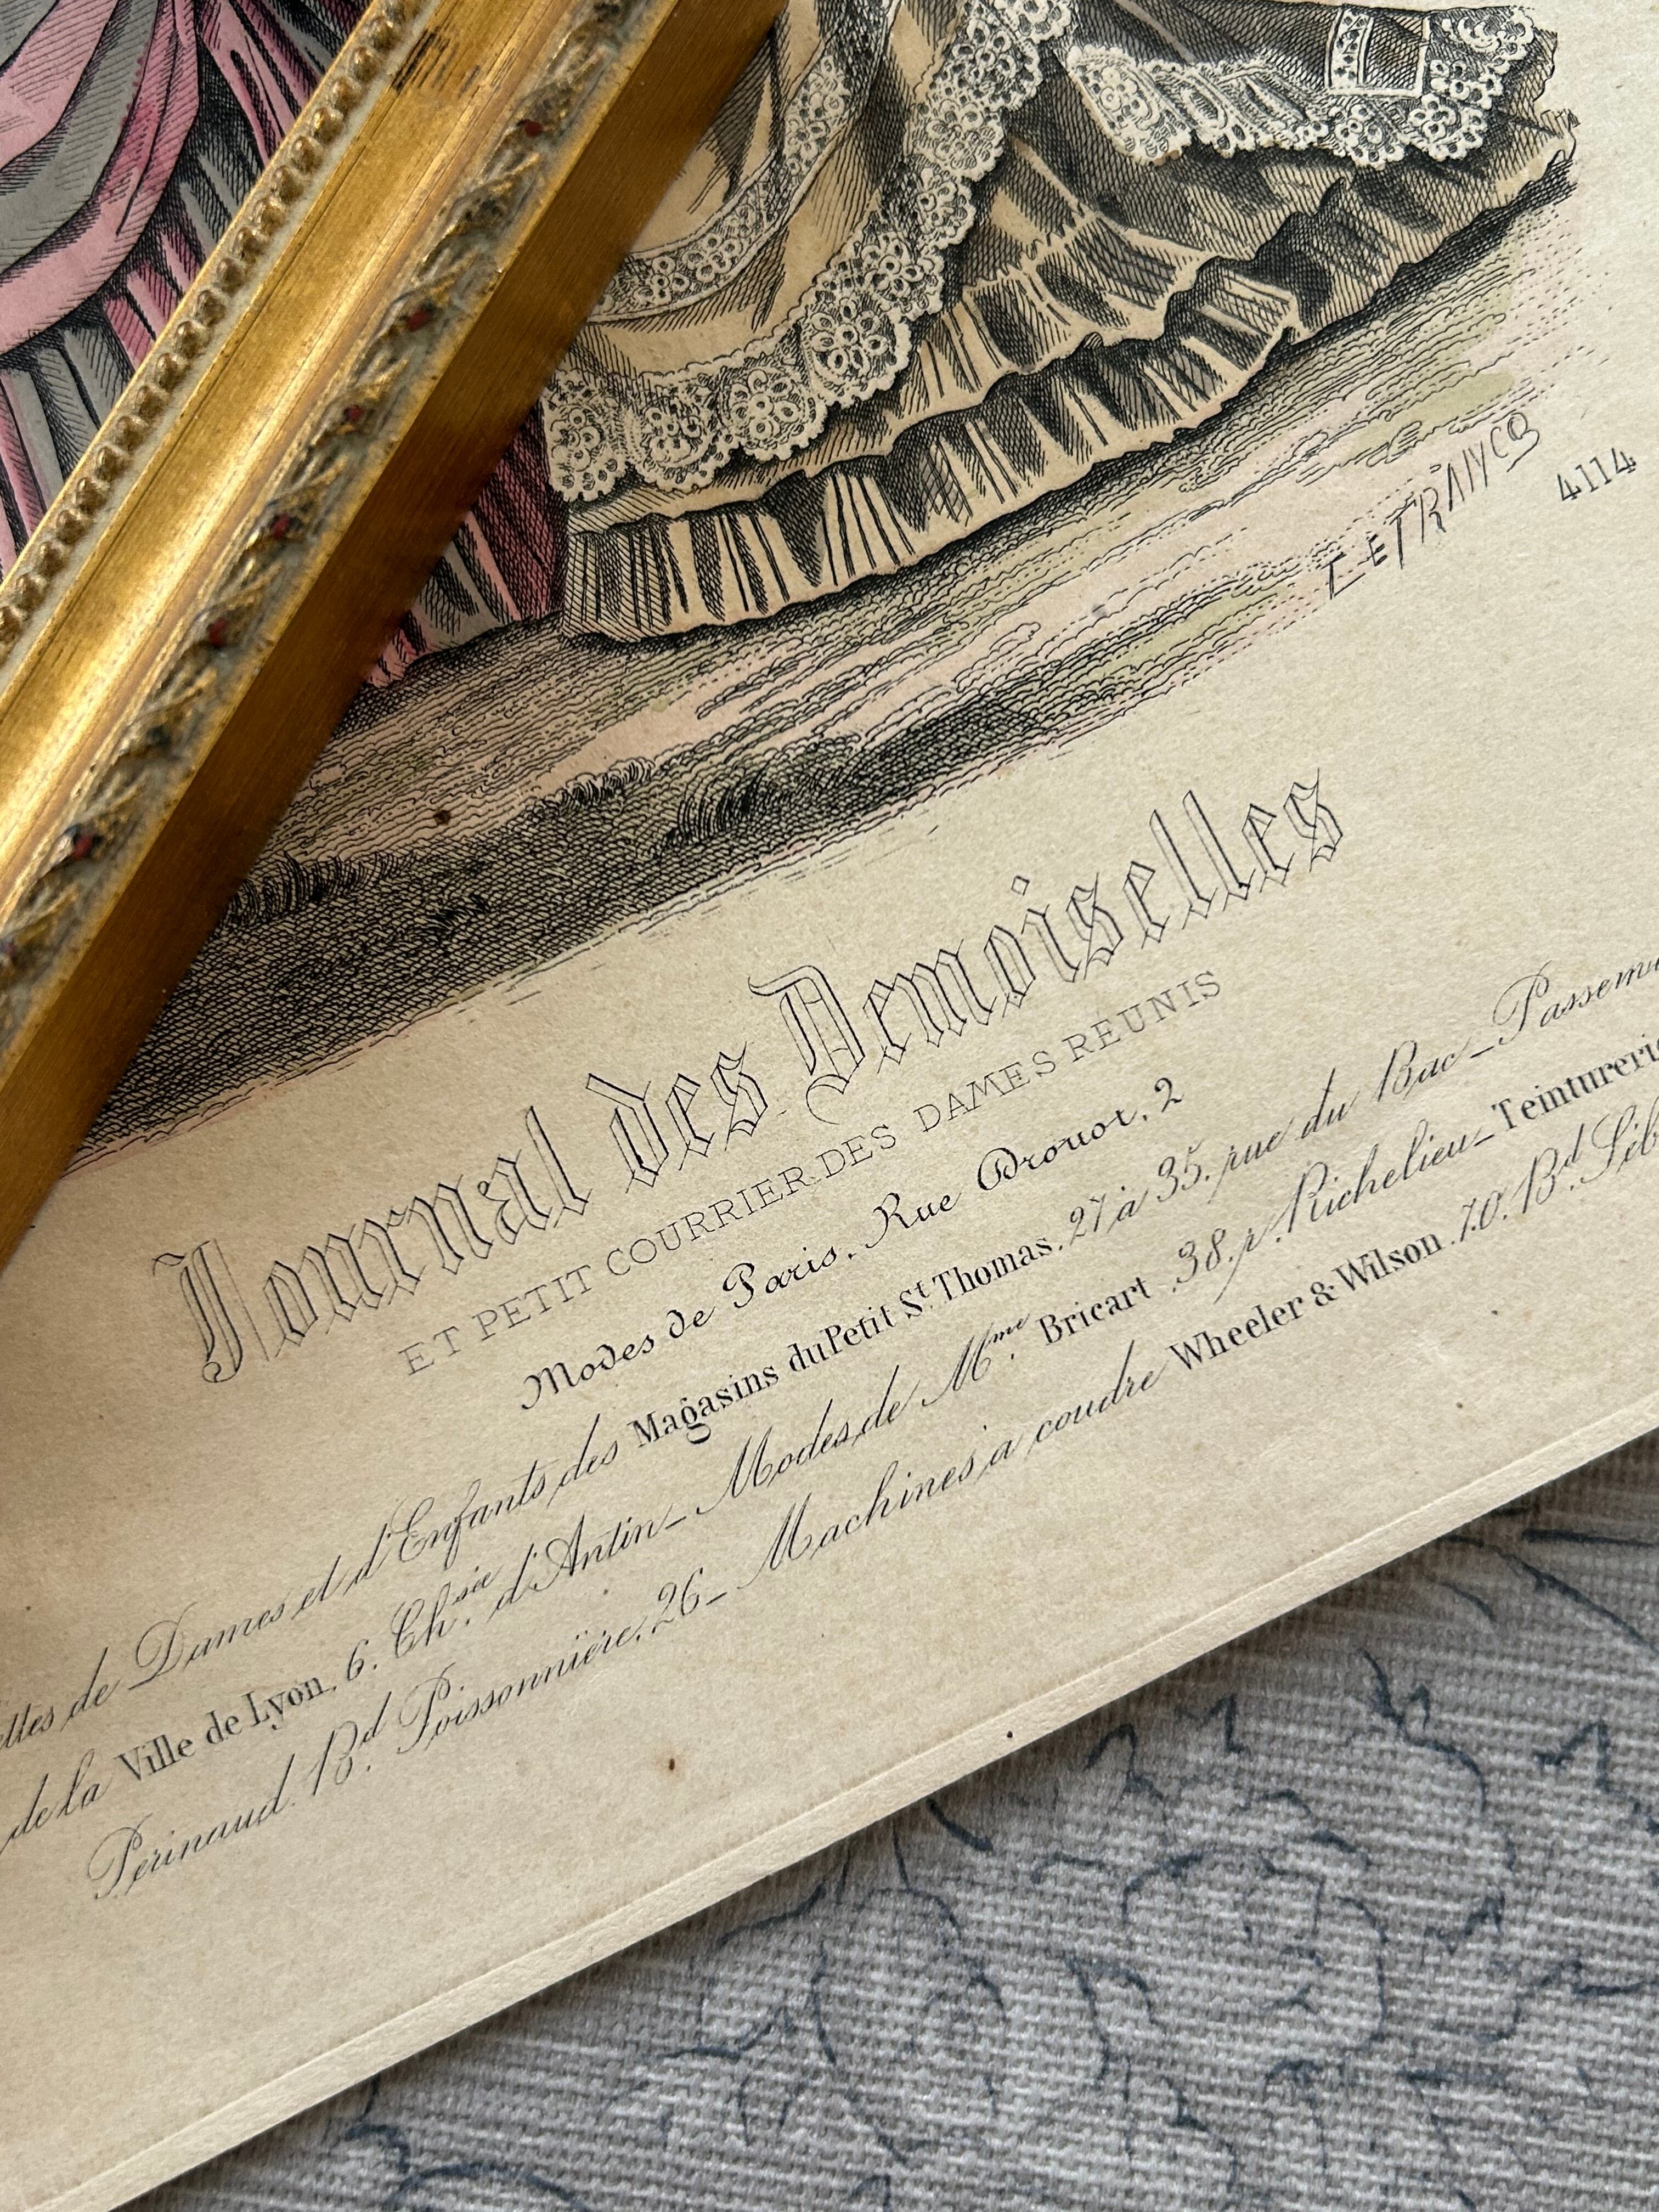 LEFRANCQ
4114
Journal des Demoiselles
ET PETIT COURRIER DES DAMES RÉUNIS
Modes de Paris. Rue Drouot, 2
de Dames et d'Enfants des Magasins du Petit St. Thomas, 27 à 35, rue du Bac_
de la Ville de Lyon, 6. Ch.sée d'Antin_ Modes de Mme. Bricart. 38. r. Richelieu_
Périnaud. Bd. Poissonnière, 26_ Machines à coudre Wheeler & Wilson. 70. Bd.